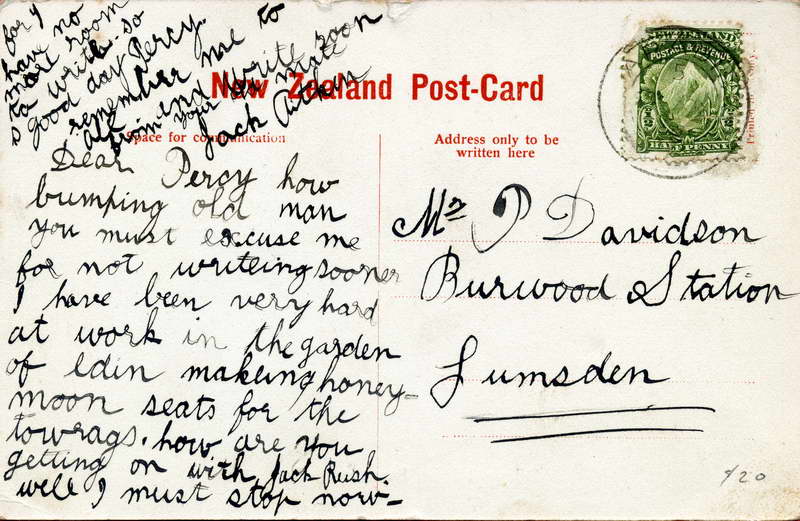 Dear Percy how
bumping old man
you must excuse me
for not writeing sooner
I have been very hard
at work in the garden
of Edin makeing honey-
moon seats for the
towrags. how are you
getting on with Jack Rush.
well I must stop now-
for I
have no
more room
to write. so
good day Percy.
remember me to
all and write soon
from your old mate
Jack Aitkin
New Zealand Post-Card
Space for communication
Address only to be
written here
NEW ZEALAND
POSTAGE & REVENUE
HALF PENNY
Mr P Davidson
Burwood Station
Lumsden
4/20